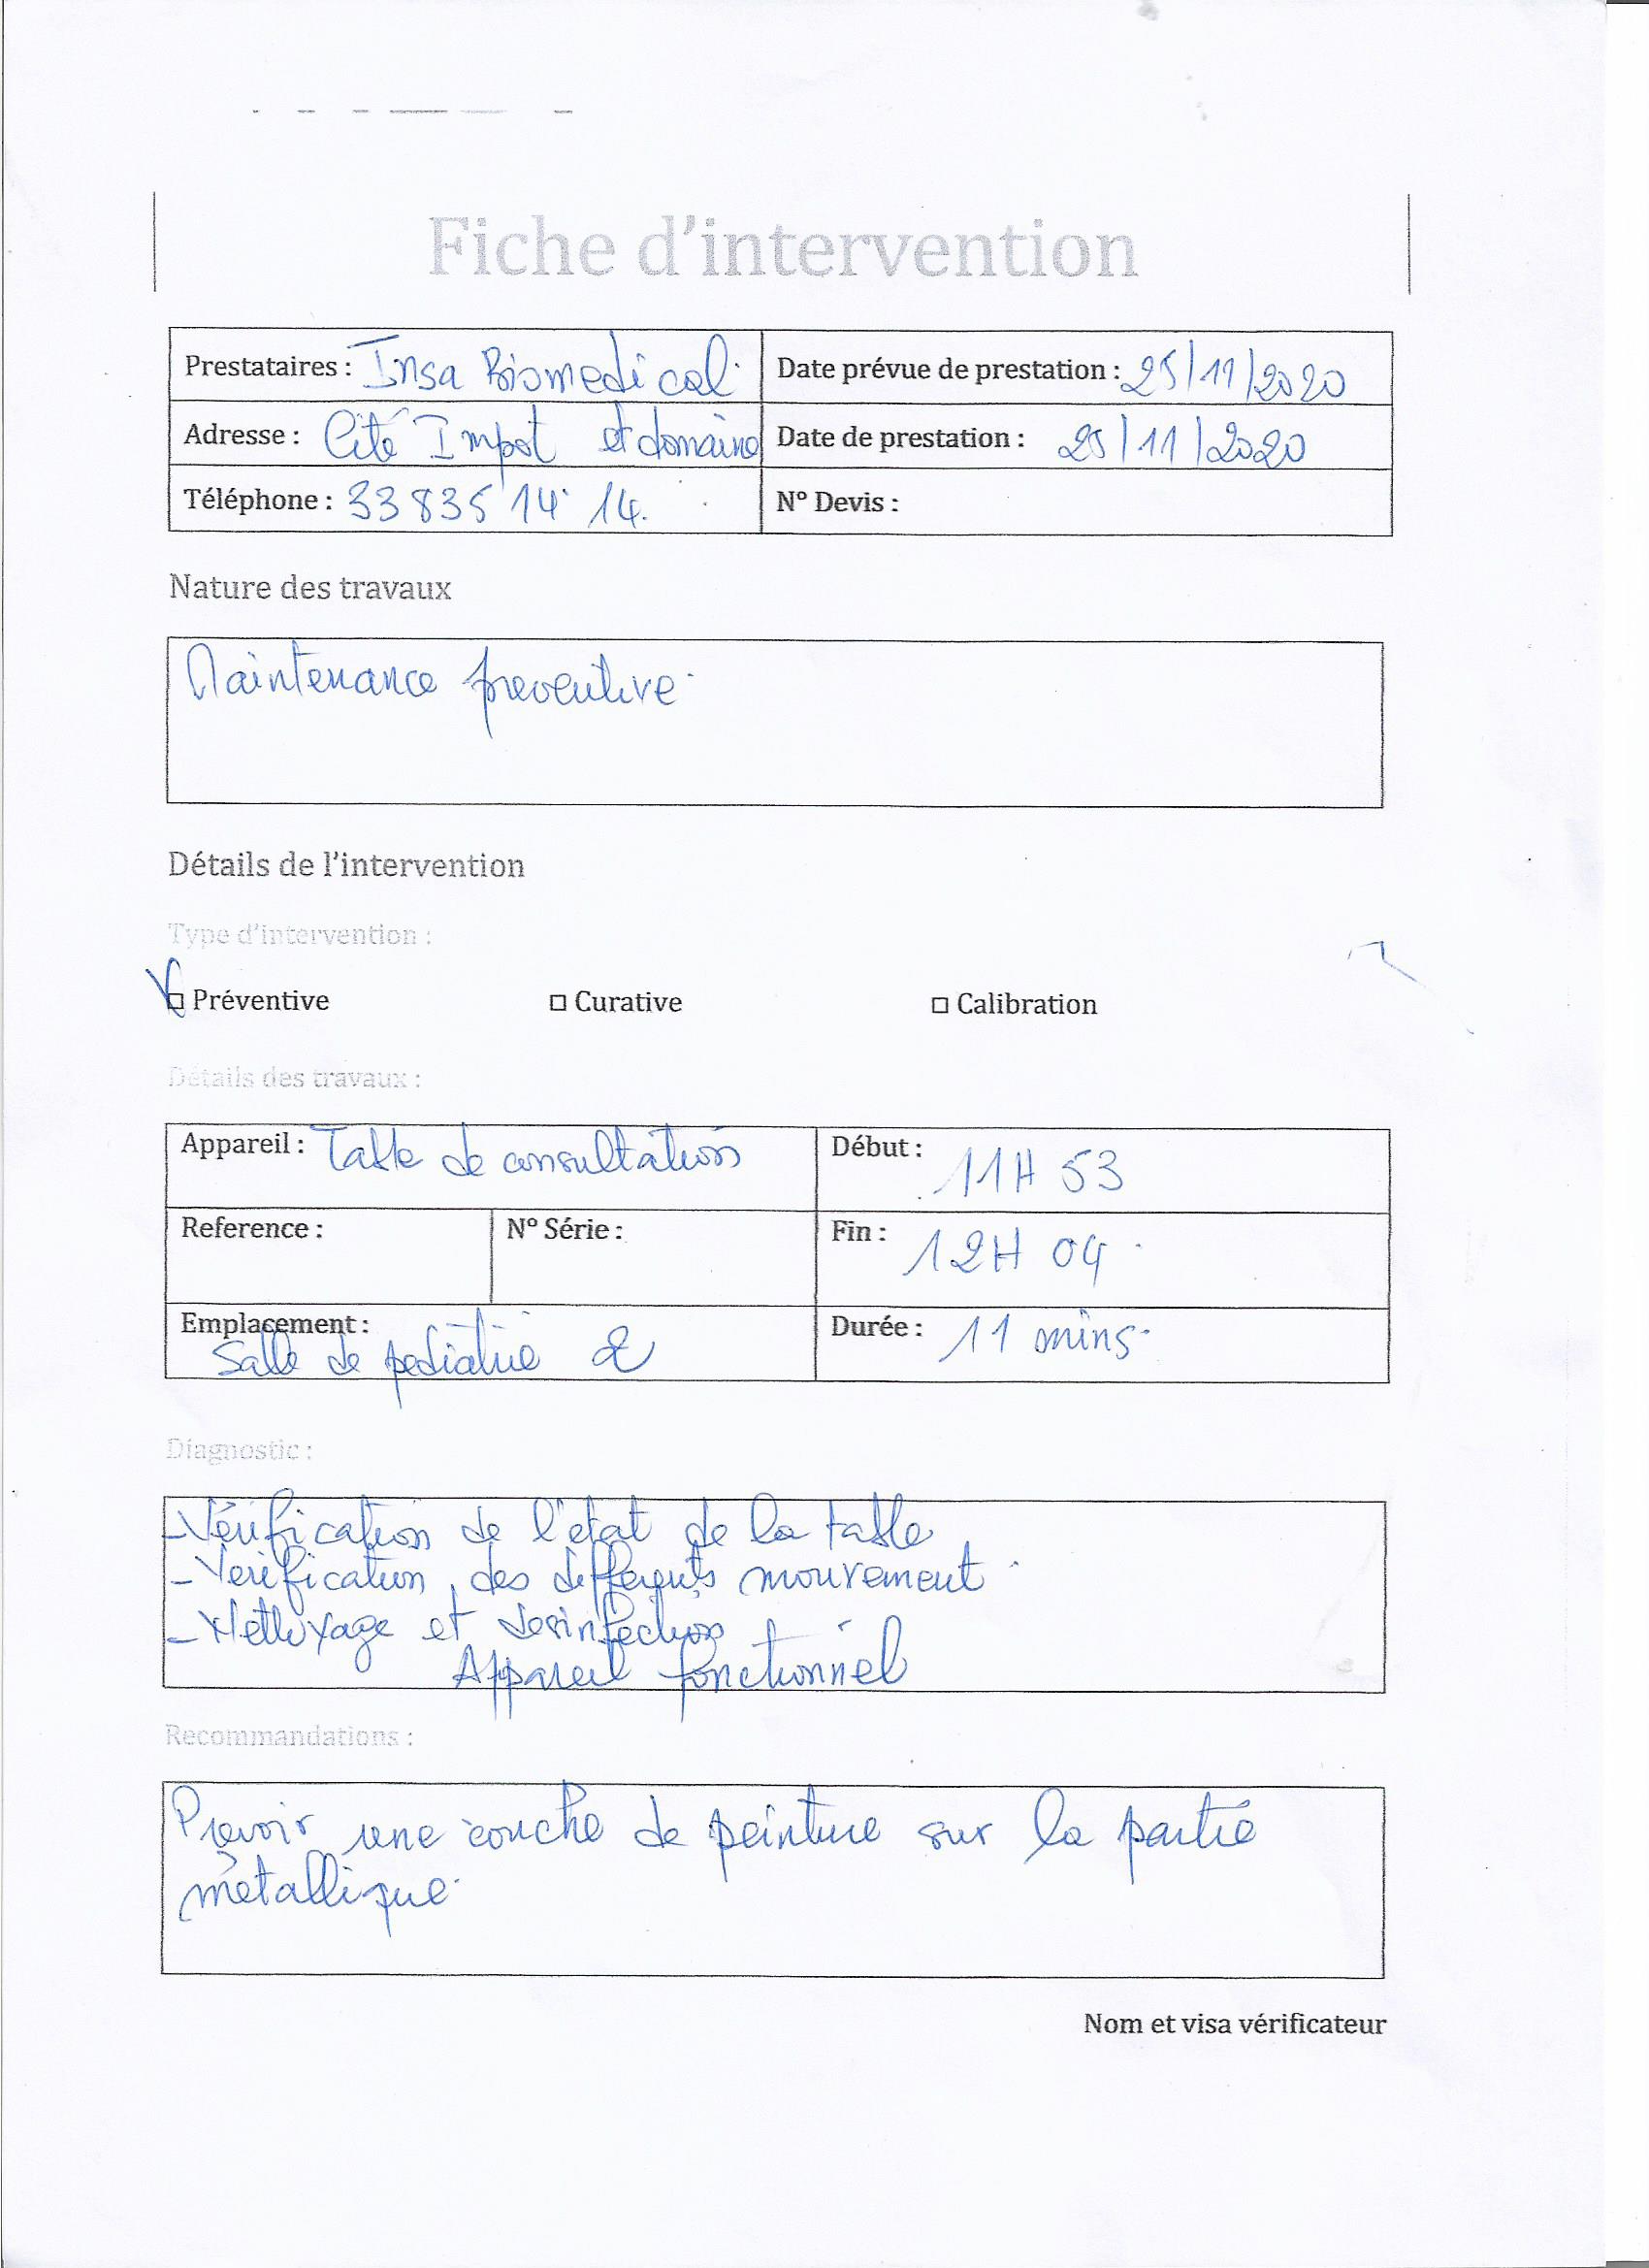 Fiche d'intervention
Prestataires : Insa Biomedical
Date prévue de prestation : 25/11/2020
Adresse : Cité Impot et domaine
Date de prestation : 25/11/2020
Téléphone : 33 835 14 14.
N° Devis :
Nature des travaux
Maintenance preventive
Détails de l'intervention
Type d'intervention :
☑ Préventive ☐ Curative ☐ Calibration
Détails des travaux :
Appareil : Table de consultation
Début : 11H 53
Reference : N° Série :
Fin : 12H 04
Emplacement :
Salle de pediatrie 2
Durée : 11 mins
Diagnostic :
- Vérification de l'état de la table
- Verification des differents mouvement
- Nettoyage et desinfection
Appareil fonctionnel
Recommandations :
Prevoir une couche de peinture sur la partie
métallique
Nom et visa vérificateur